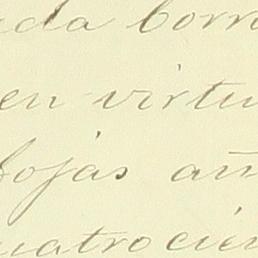 ada borr
en virtu
fojas añ
uatrocien